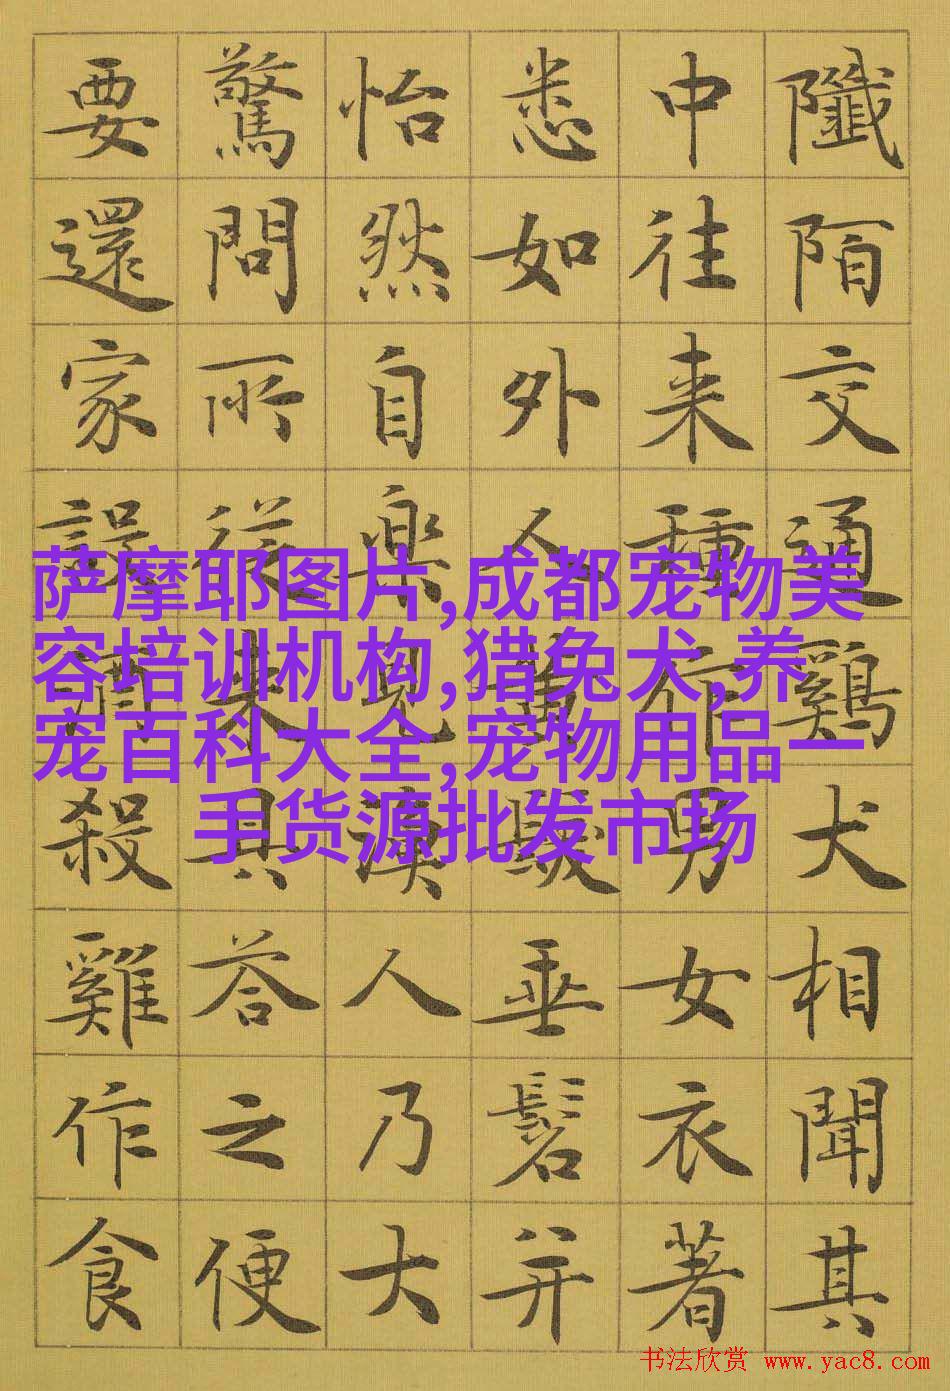 陌交通鷄犬相聞其
中往来種作男女衣著
悉如外人黃髮垂髫并
怡然自楽見漁人乃大
驚問所從来具荅之便
要還家設酒殺雞作食
萨摩耶图片,成都宠物美
容培训机构,猎兔犬,养
宠百科大全,宠物用品一
手货源批发市场
书法欣赏 www.yac8.com